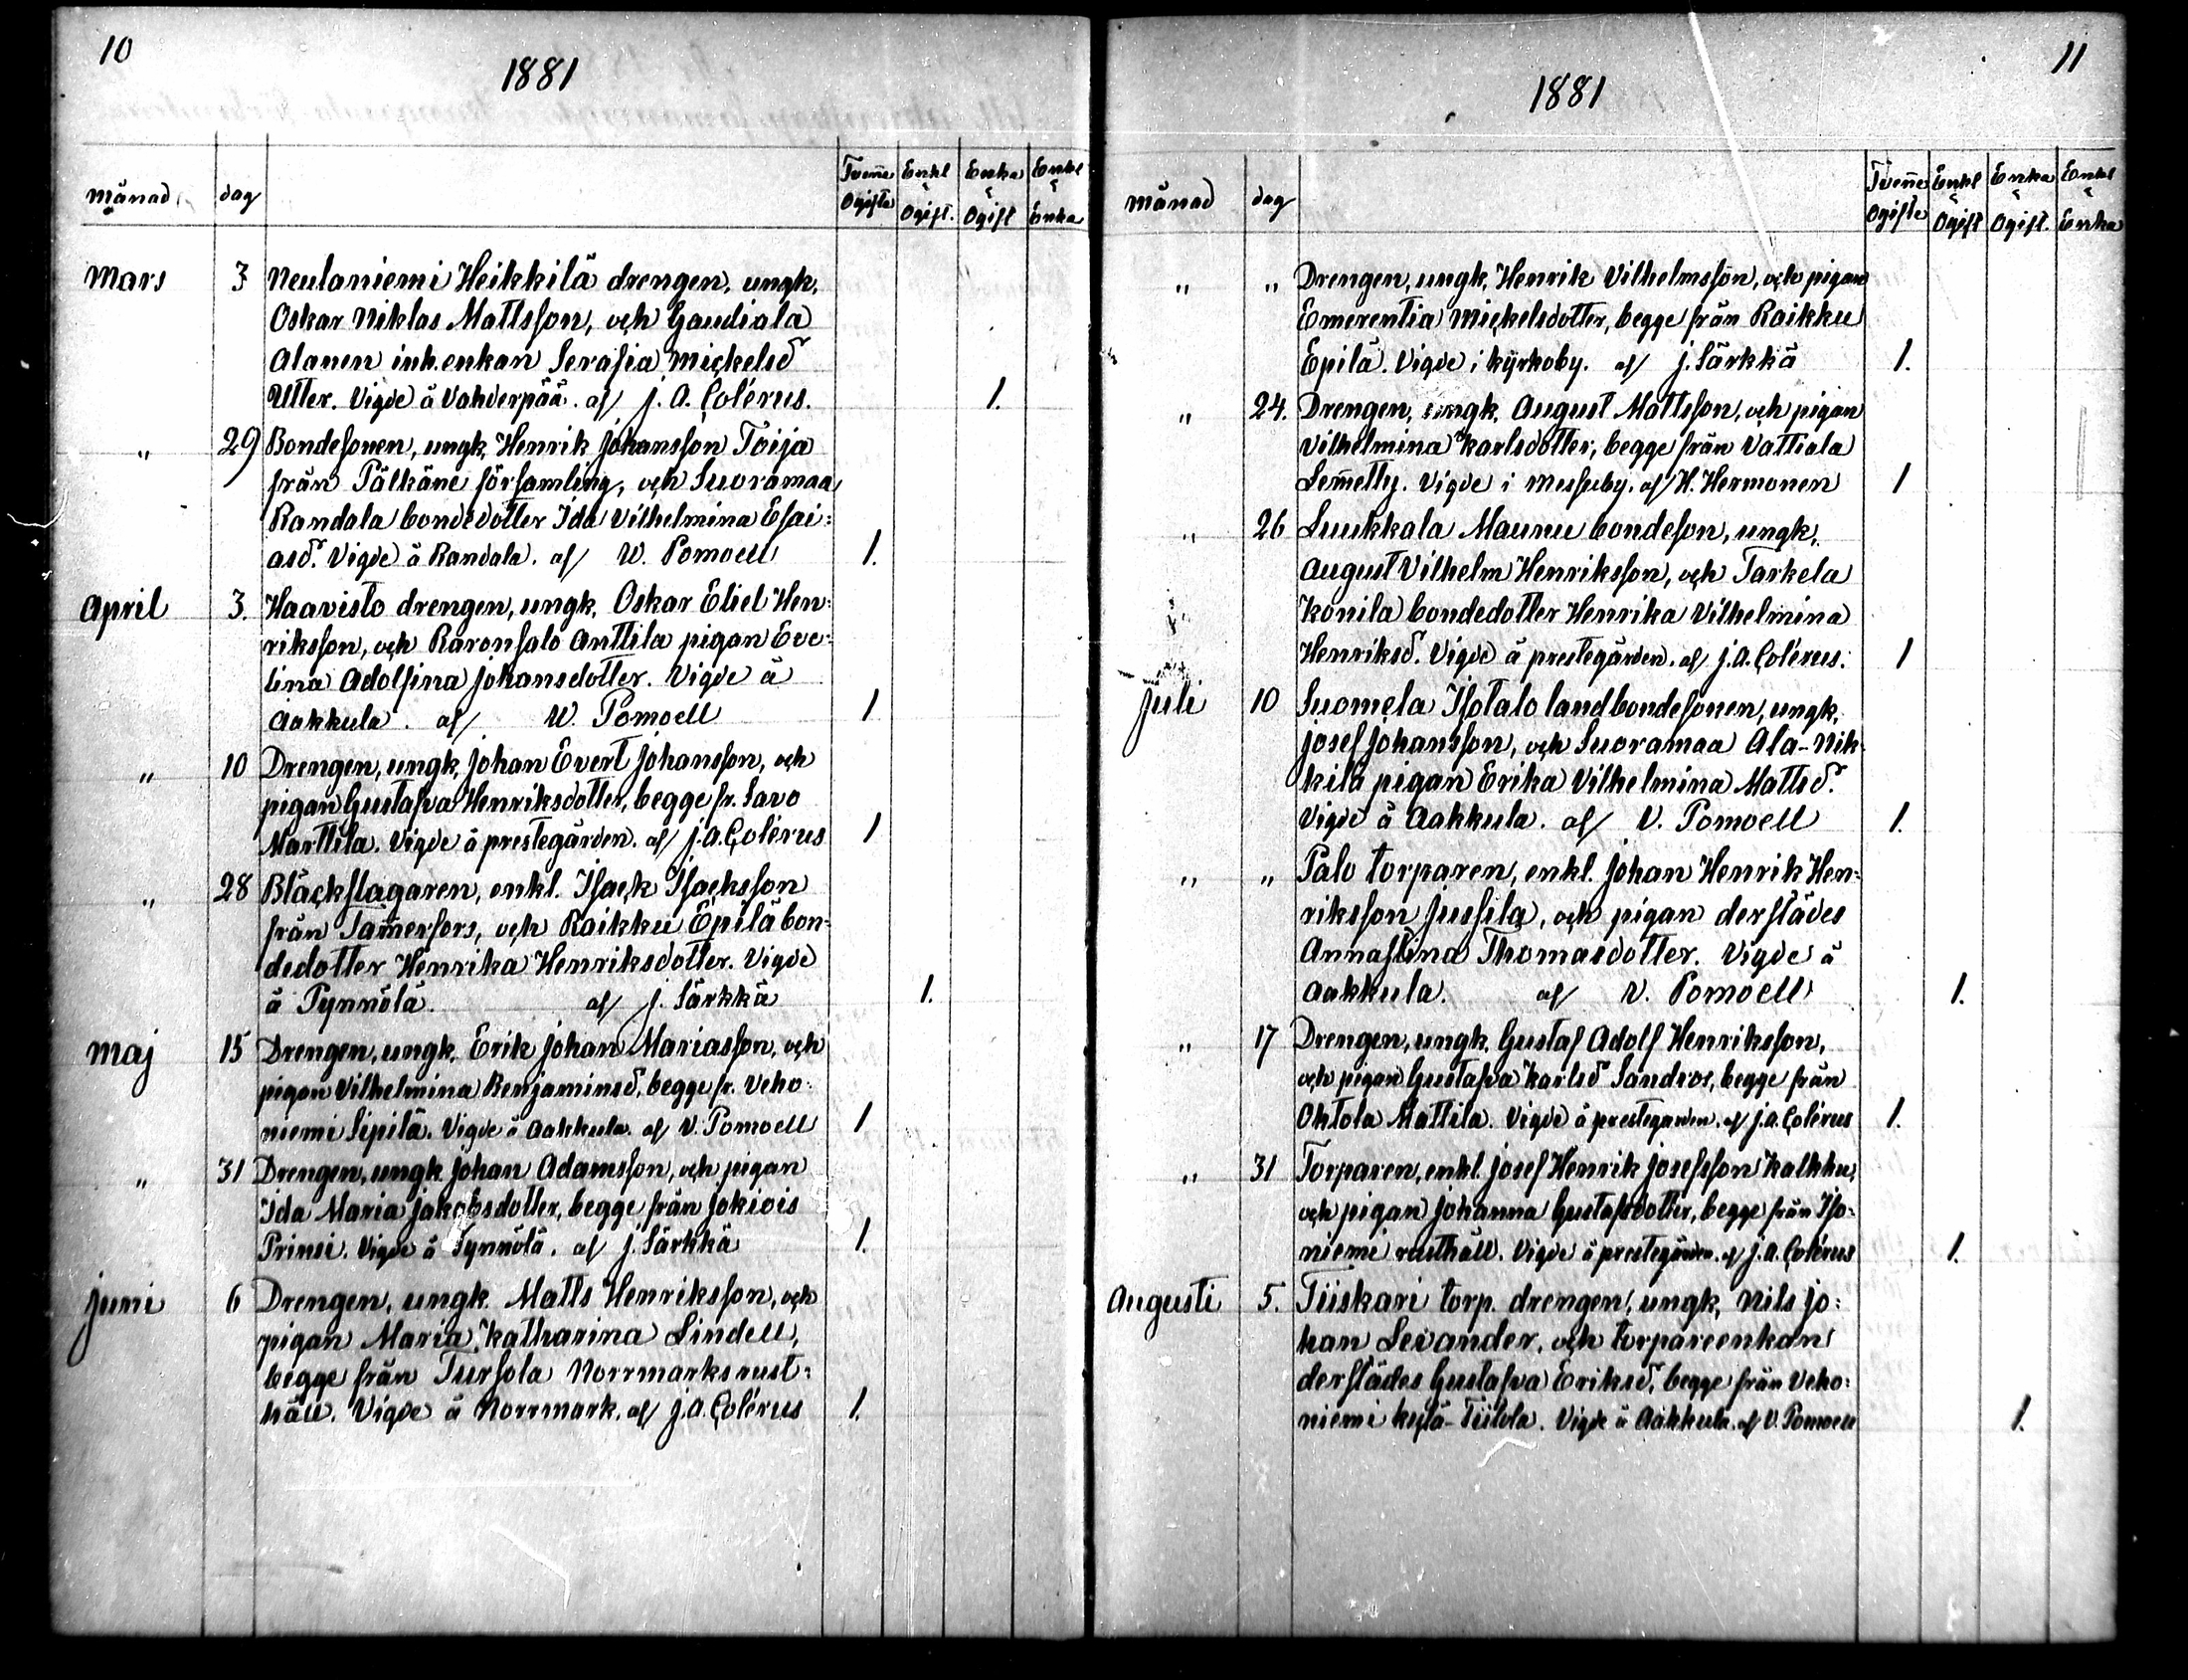 10
1881
månad
dag
Tvenne Ogifte
Enkl & Ogift.
Enka & Ogift
Enkl & Enka
Mars 3 Neulaniemi Heikkilä drengen, ungk,
Oskar Niklas Mattsson, och Gaudiala
Alanen inh. enkan Serafia Mickelsd
Utter. Vigde å Vahderpää. af J. A. Colérus. 1.
" 29 Bondesonen, ungk, Henrik Johansson Toija
från Pälkäne församling, och Suoramaa
Randala bondedotter Ida Vilhelmina Esai=
asd. Vigde å Randala. af W. Pomoell 1.
April 3. Haavisto drengen, ungk, Oskar Eliel Hen=
riksson, och Raronsalo Anttila pigan Eve=
lina Adolfina Johansdotter. Vigde å
Aakkula. af W. Pomoell 1
" 10 Drengen, ungk, Johan Evert Johansson, och
pigan Gustafva Henriksdotter, begge fr. Savo
Marttila. Vigde å prestegården. af J. A. Colérus 1
" 28 Bläckslagaren, enkl. Isack Isacksson
från Tam̄erfors, och Raikku Epilä bon=
dedotter Henrika Henriksdotter. Vigde
å Pynnölä. af J. Särkkä 1.
Maj 15 Drengen, ungk, Erik Johan Mariasson, och
pigan Vilhelmina Benjaminsd, begge fr. Veho=
niemi Sipilä. Vigde å Aakkula. af V. Pomoell 1
" 31 Drengen, ungk Johan Adamsson, och pigan
Ida Maria Jakobsdotter, begge från Jokiois
Prinsi. Vigde å Pynnölä. af J. Särkkä 1.
Juni 6 Drengen, ungk. Matts Henriksson, och
pigan Maria Katharina Lindell,
begge från Tursola Norrmarks rust=
håll. Vigde å Norrmark. af J. A. Colérus 1.
11
1881
månad
dag
Tvenne Ogifte
Enkl & Ogift
Enka & Ogift.
Enkl & Enka
" " Drengen, ungk, Henrik Vilhelmsson, och pigan
Emerentia Mickelsdotter, begge från Raikku
Epilä. Vigde i kyrkoby. af J. Särkkä 1.
" 24. Drengen, ungk, August Mattsson, och pigan
Vilhelmina Karlsdotter, begge från Vattiala
Sem̄etty. Vigde i Messuby. af H. Hermonen 1
" 26 Luukkala Maunu bondeson, ungk,
August Vilhelm Henriksson, och Tarkela
Konila bondedotter Henrika Vilhelmina
Henriksd. Vigde å prestegården. af J. A. Colérus. 1
Juli 10 Suomela Isotalo landbondesonen, ungk,
Josef Johansson, och Suoramaa Ala-Nik=
kilä pigan Erika Vilhelmina Mattsd.
Vigde å Aakkula. af V. Pomoell 1.
" " Palo torparen, enkl. Johan Henrik Hen=
riksson Jussila, och pigan derstädes
Annastina Thomasdotter. Vigde å
Aakkula. af V. Pomoell 1.
" 17 Drengen, ungk. Gustaf Adolf Henriksson,
och pigan Gustafva Karlsd Sandros, begge från
Ohtola Mattila. Vigde å prestegården. af J. A. Colérus 1.
" 31 Torparen, enkl. Josef Henrik Josefsson Kalkku,
och pigan Johanna Gustafsdotter, begge från Iso=
niemi rusthåll. Vigde å prestegården. af J. A. Colérus 1.
Augusti 5. Tiiskari torp. drengen, ungk, Nils Jo=
han Levander, och torpareenkan
derstädes Gustafva Eriksd, begge från Veho=
niemi kylä-Tiitola. Vigde å Aakkula. af V. Pomoell 1.